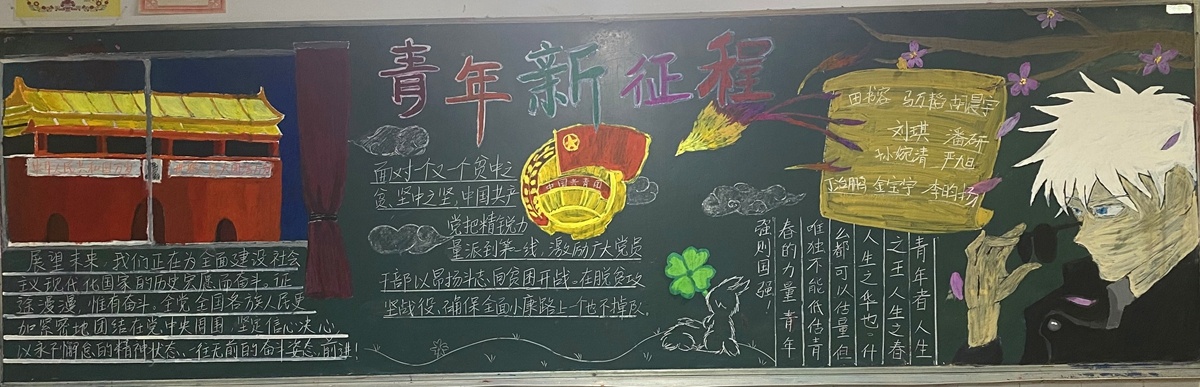 青年新征程
展望未来，我们正在为全面建设社会
主义现代化国家的历史宏愿而奋斗。征
途漫漫，惟有奋斗。全党全国各族人民更
加紧密地团结在党中央周围，坚定信心决心，
以永不懈怠的精神状态、一往无前的奋斗姿态，前进！
面对一个又一个贫中之
贫、坚中之坚，中国共产
党把精锐力
量派到第一线，激励广大党员
干部以昂扬斗志向贫困开战。在脱贫攻
坚战役，确保全面小康路上一个也不掉队。
中国共青团
马万韬
刘琪 潘研
孙婉清 严旭
金宝宁 李昀扬
青年者人生
之王人生之春
人生之华也。什
么都可以估量但
唯独不能低估青
春的力量青年
强则国强！